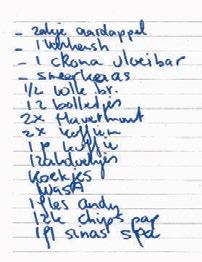 - zakje aardappel
- 1
- 1 Crona vloeibar
- smeerkaas
1/2 bolle br.
12 bolletjes
2x Havermout
2x koffiem
1 p koffie
koekjes
WASA
1 fles andy
12k chips pap
1 fl sinas spa